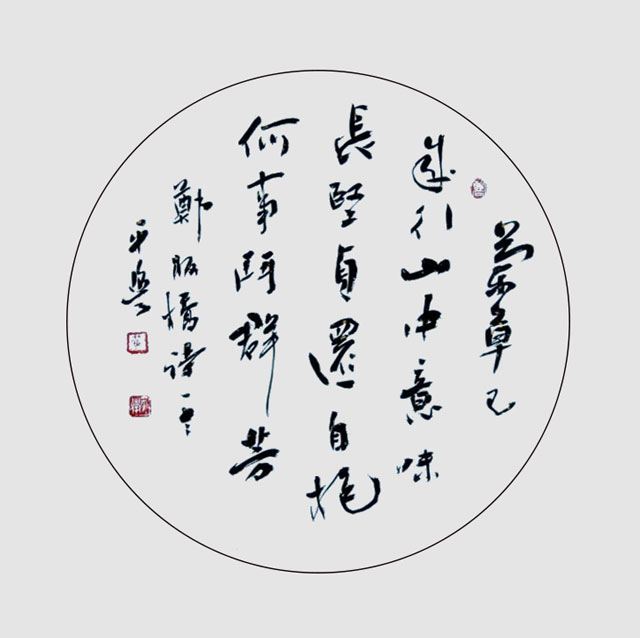 蘭草已
成行山中意味
長堅貞還自抱
何事鬥群芳
鄭板橋詩一首
平